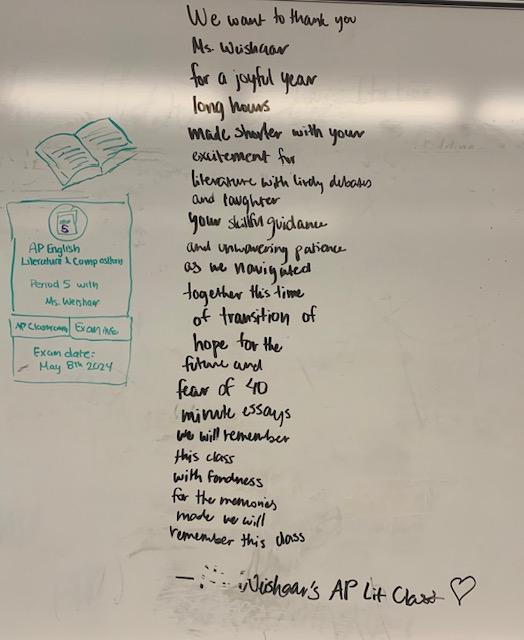 We want to thank you
Ms. Weishaar
for a joyful year
long hours
made shorter with your
excitement for
literature with lively debates
and laughter
your skillful guidance
and unwavering patience
as we navigated
together this time
of transition of
hope for the
future and
fear of 40
minute essays
we will remember
this class
with fondness
for the memories
made we will
remember this class
Weishaar's AP Lit Class ♡
5
AP English
Literature & Composition
Period 5 with
Ms. Weishaar
AP Classroom Exam info
Exam date:
May 8th 2024